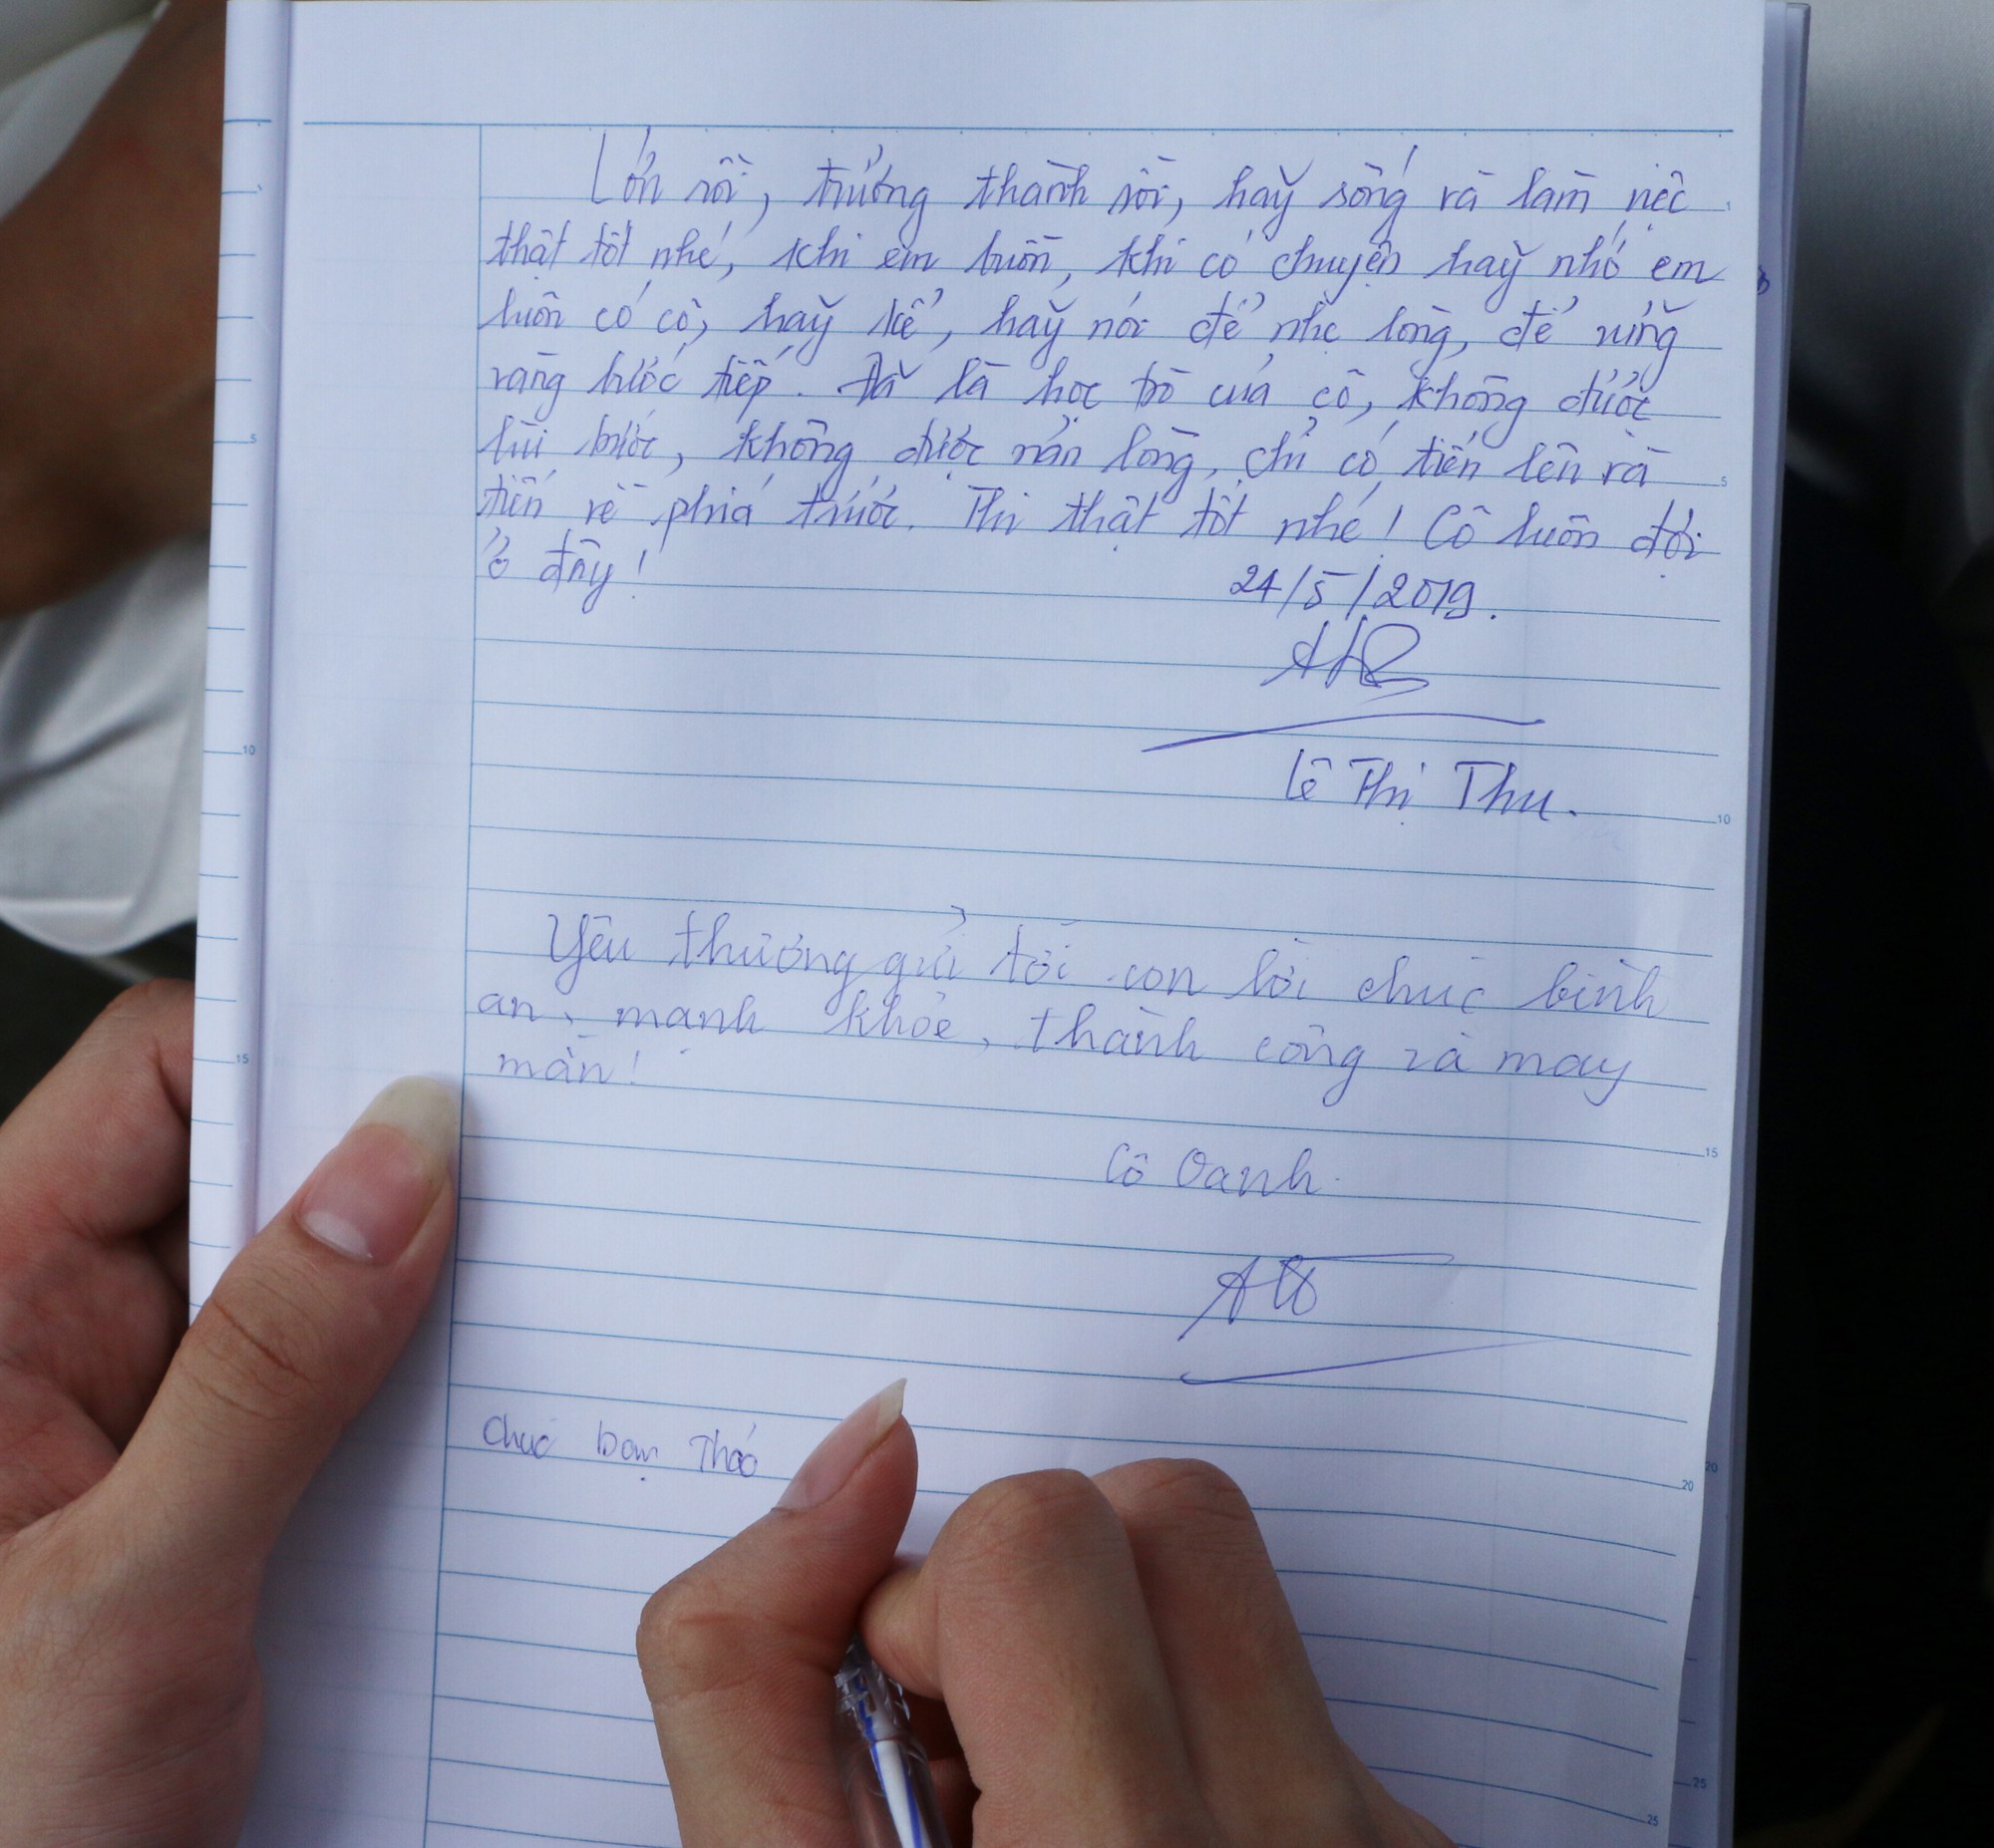 Lớn rồi, trưởng thành rồi, hãy sống và làm việc
thật tốt nhé, khi em buồn, khi có chuyện hãy nhớ em
luôn có cô, hãy kể, hãy nói để nhẹ lòng, để vững
vàng bước tiếp. Đã là học trò của cô, không được
lùi bước, không được nản lòng, chỉ có tiến lên và
tiến về phía trước. Thi thật tốt nhé! Cô luôn đợi
ở đây!
24/5/2019.
Lê Thị Thu.
Yêu thương gửi tới con lời chúc bình
an, mạnh khỏe, thành công và may
mắn!
Cô Oanh.
Chúc bạn Thảo
5
10
15
5
10
15
20
20
25
25